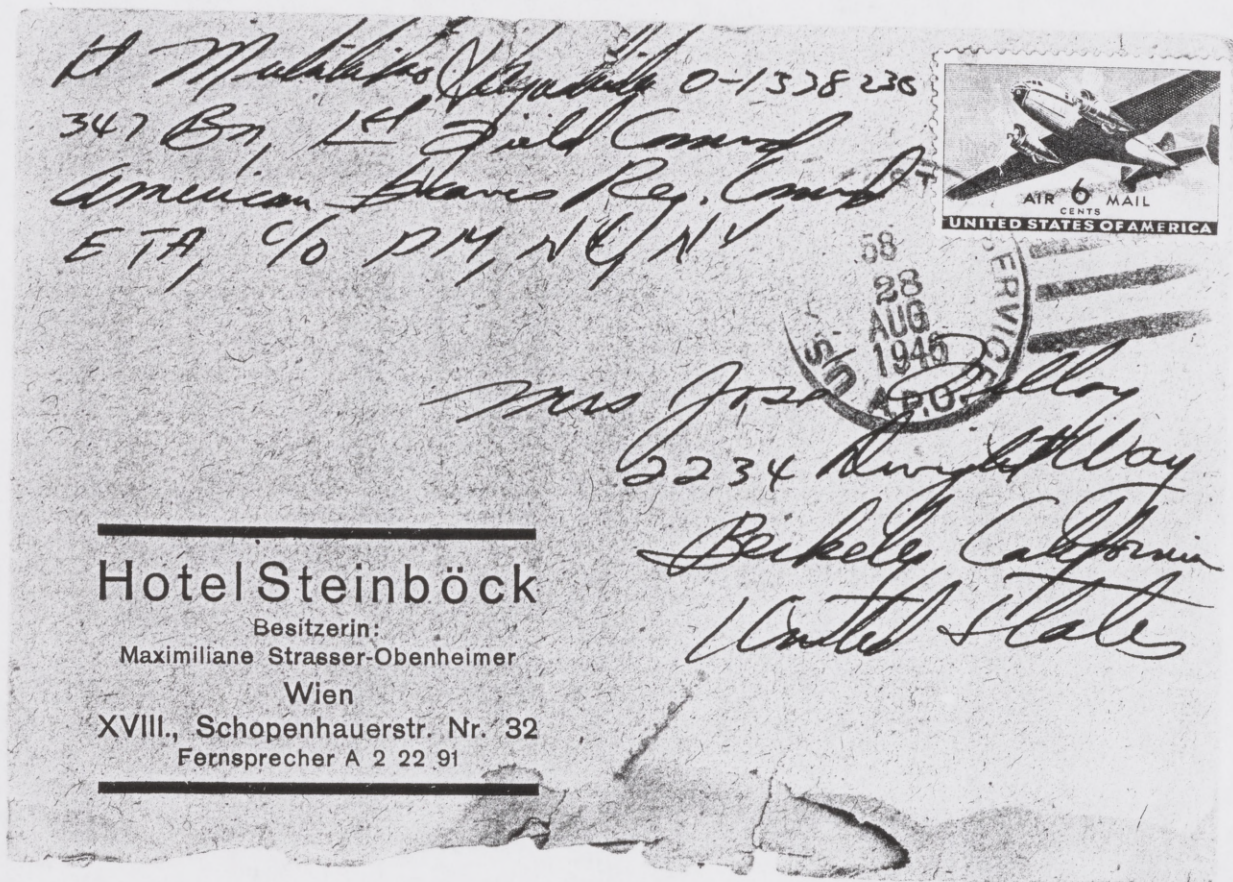 Lt 0-1338236
347 Bn, 1st Field Comnd
American Graves Reg. Comnd
ETA, c/o PM, NY, NY
AIR 6 MAIL
CENTS
UNITED STATES OF AMERICA
58
28
AUG
1946
U.S. SERVICE
A.P.O.
Mrs
2234 Dwight Way
Berkeley California
United States
Hotel Steinböck
Besitzerin:
Maximiliane Strasser-Obenheimer
Wien
XVIII., Schopenhauerstr. Nr. 32
Fernsprecher A 2 22 91